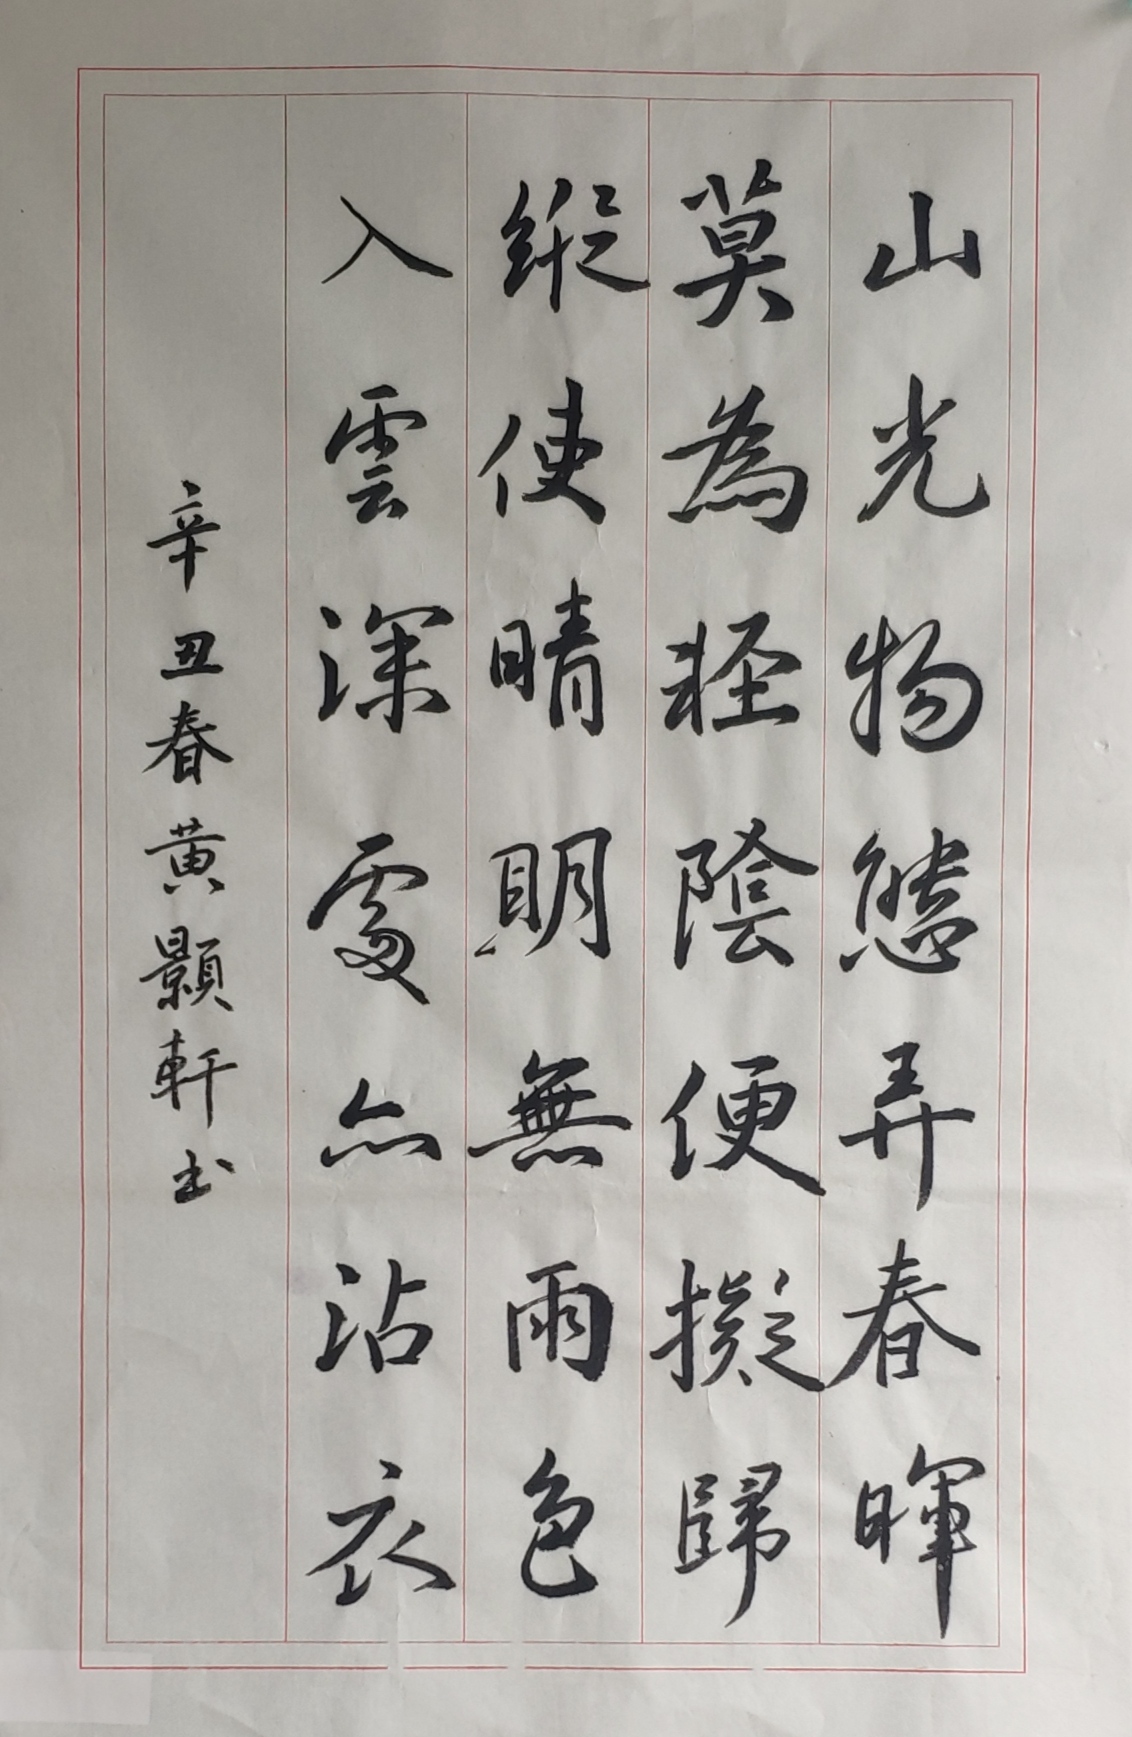 山光物態弄春暉
莫為軽陰便擬歸
縱使晴明無雨色
入雲深處亦沾衣
辛丑春黄顥軒书